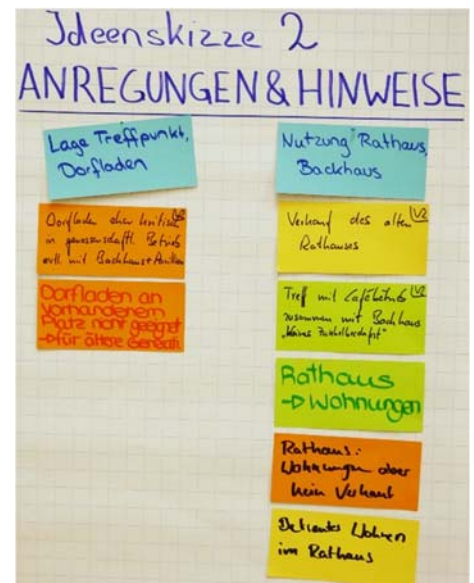 Ideenskizze 2
ANREGUNGEN & HINWEISE
Lage Treffpunkt,
Dorfladen
Dorfladen eher kritisch V2
in genossenschaftl. Betrieb
evtl. mit Backhaus +
Dorfladen an
vorhandenem
Platz nicht geeignet
→ für ältere Generati
Nutzung Rathaus,
Backhaus
Verkauf des alten V2
Rathauses
Treff mit Cafébetrieb V2
zusammen mit Backhaus
Rathaus
→ Wohnungen
Rathaus:
Wohnungen aber
kein Verkauf
Betreutes Wohnen
im Rathaus